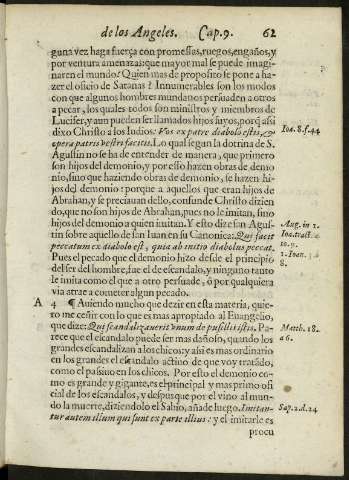 de los Angeles. Cap. 9. 62
guna vez haga fuerça con promessas, ruegos, engaños, y
por ventura amenazas: que mayor mal se puede imagi-
naren el mundo? Quien mas de proposito se pone a ha-
zer el oficio de Satanas? Innumerables son los modos
con que algunos hombres mundanos persuaden a otros
a pecar, los quales todos son ministros y miembros de
Lucifer, y aun pueden ser llamados hijos suyos, porq̃ assi
dixo Christo a los Iudios: Vos ex patre diabolo estis, &
opera patris vestri facitis. Lo qual segun la dotrina de S.
Agustin no se ha de entender de manera, que primero
son hijos del demonio, y por esso hazen obras de demo
nio, sino que haziendo obras de demonio, se hazen hi-
jos del demonio: porque a aquellos que eran hijos de
Abrahan, y se preciauan dello, confunde Christo dizien
do, que no son hijos de Abrahan, pues no le imitan, sino
hijos del demonio a quien imitan. Y esto dize san Agus-
tin sobre aquello de san Iuan en su Canonica: Qui facit
peccatum ex diabolo est, quia ab initio diabolus peccat.
Pues el pecado que el demonio hizo desde el principio
del ser del hombre, fue el de escandalo, y ninguno tanto
le imita como el que a otro persuade, ò por qualquiera
via atrae a cometer algun pecado.
A 4 ¶ Auiendo mucho que dezir en esta materia, quie-
ro me ceñir con lo que es mas apropiado al Euangelio,
que dize: Qui scandalizauerit vnum de pusillis istis. Pa-
rece que el escandalo puede ser mas dañoso, quando los
grandes escandalizan a los chicos: y assi es mas ordinario
en los grandes el escandalo actiuo de que voy tratado,
como el passiuo en los chicos. Por esto el demonio co-
mo es grande y gigante, es el principal y mas primo ofi
cial de los escandalos, y despues que por el vino al mun-
do la muerte, diziendolo el Sabio, añade luego. Imitan-
tur autem illum qui sunt ex parte illius: y el imitarle es
procu
Ioa. 8. f. 44
Aug. in 2.
Ioa. tract.
10.
1. Ioan. 3.
8.
Math. 18.
a 6.
Sap. 2. d. 24